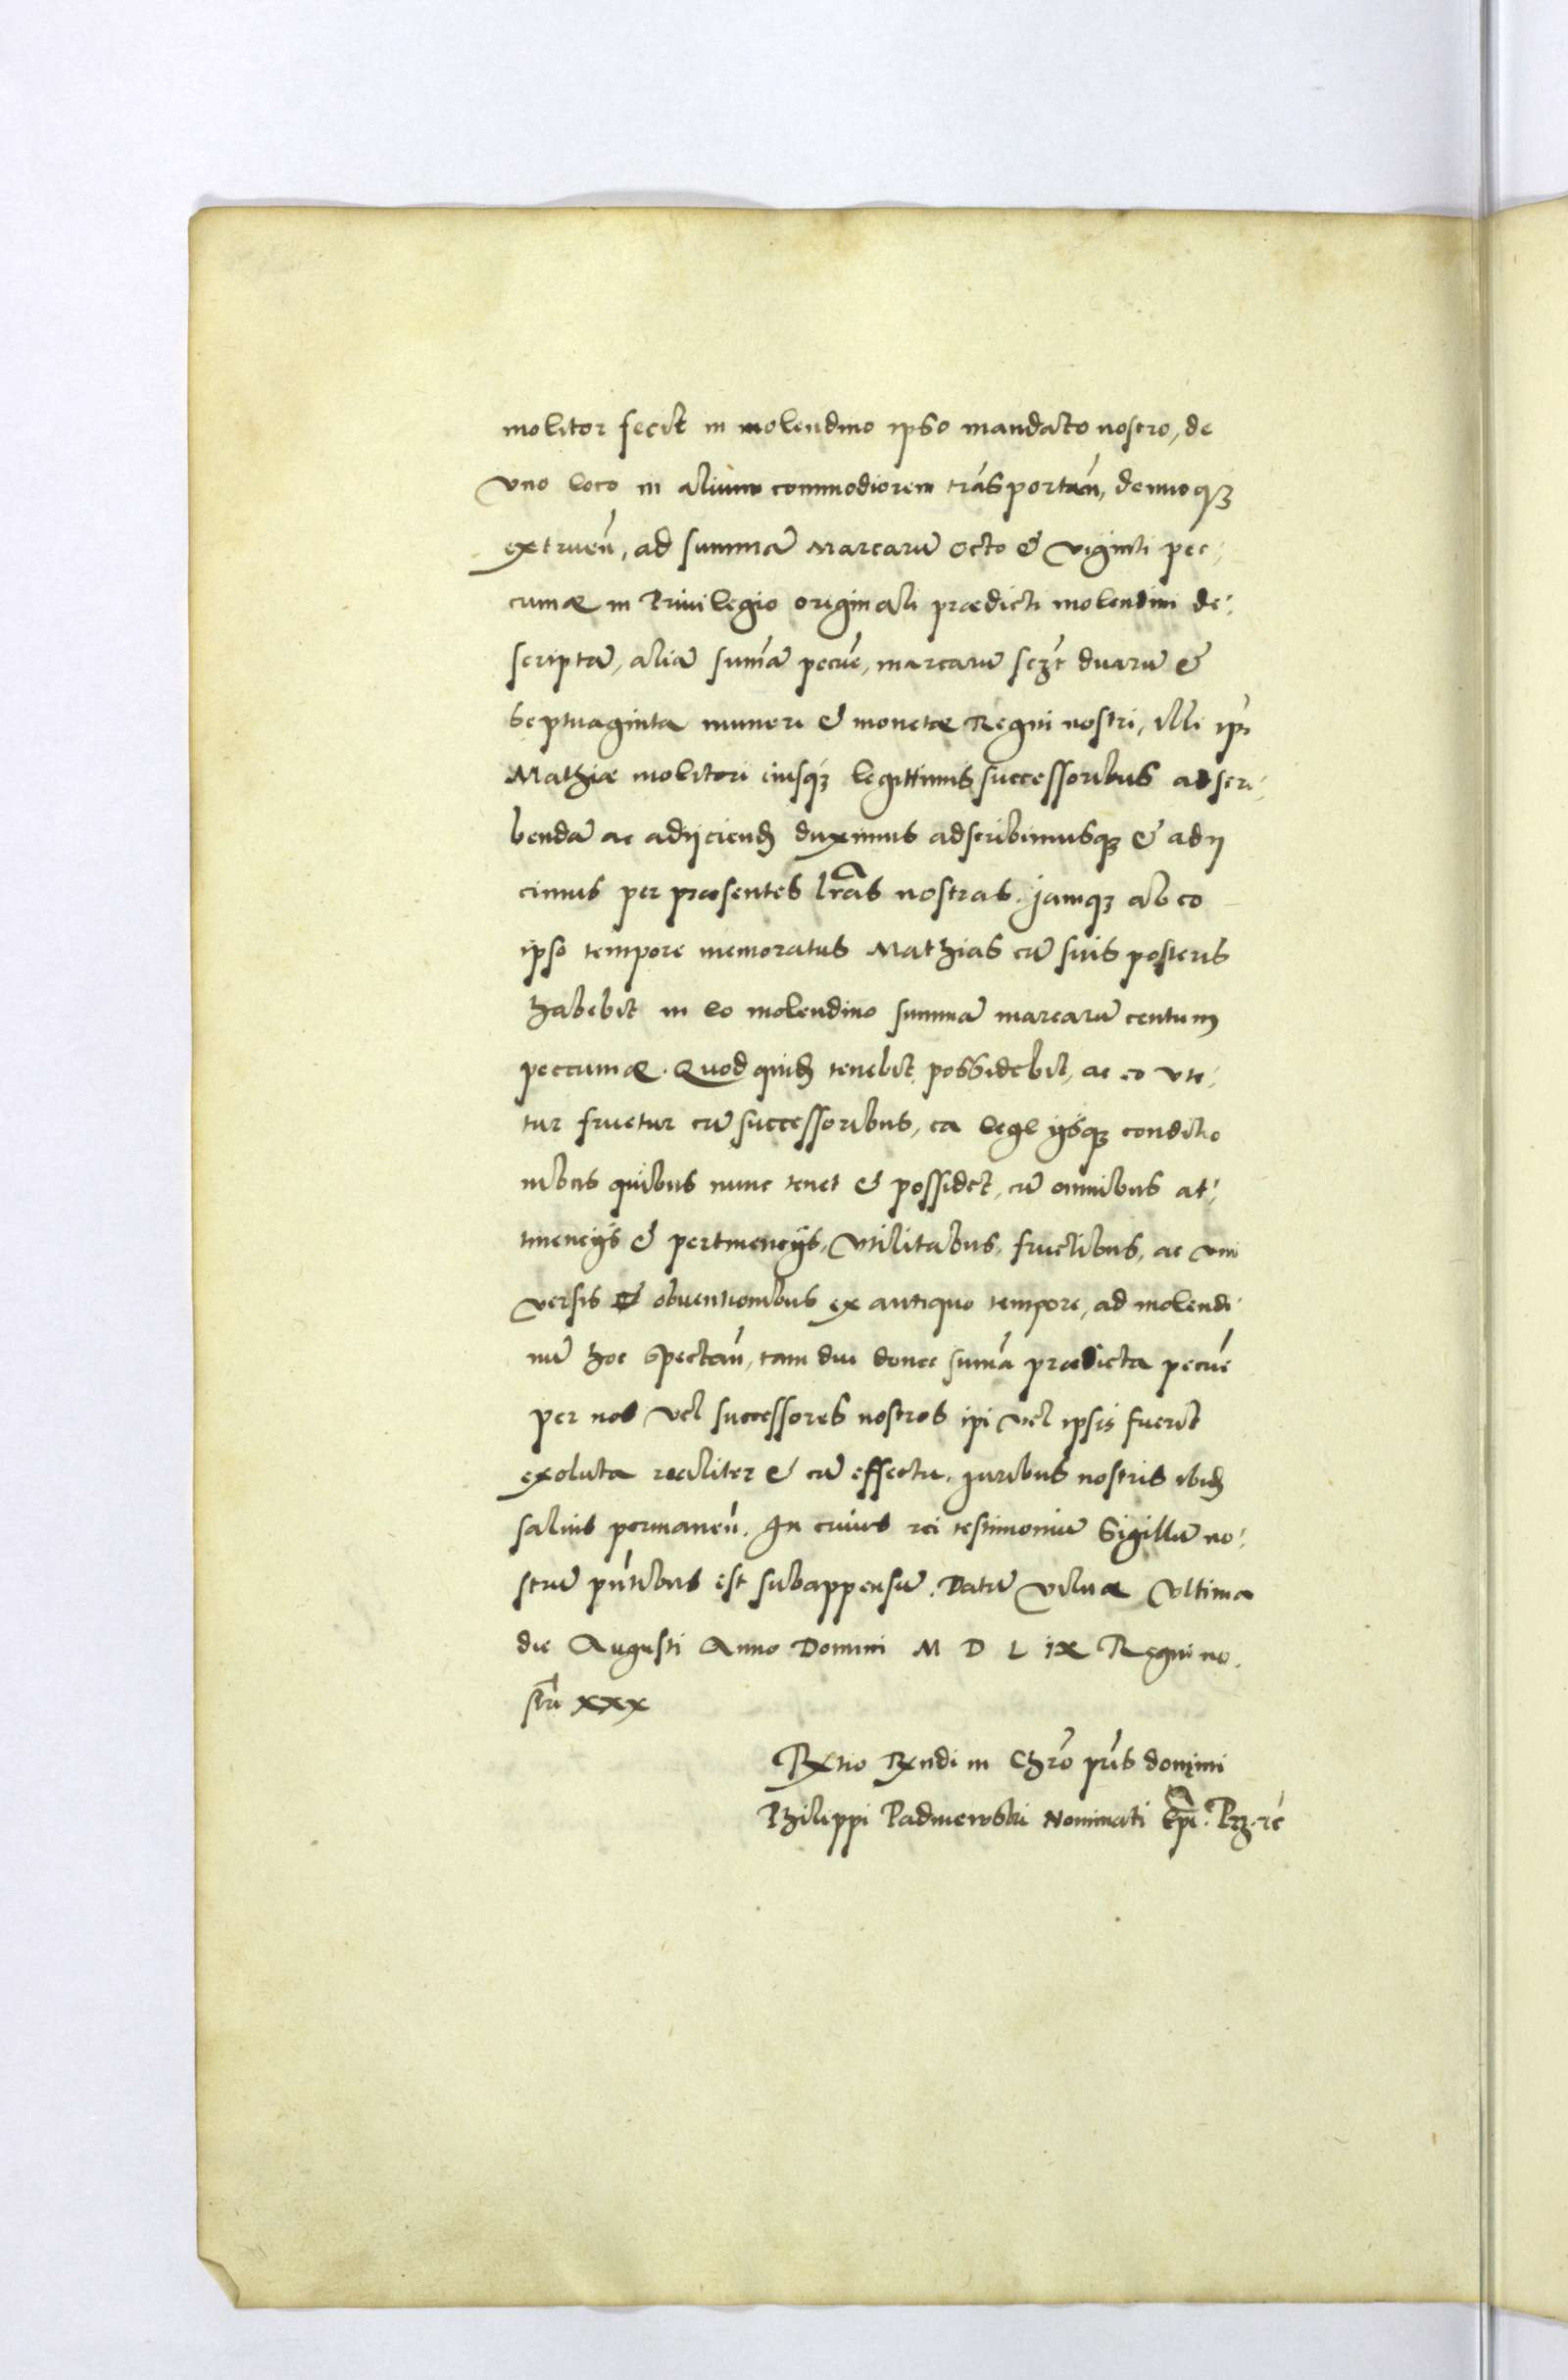 molitor fecit in molendino ipso mandato nostro, de
vno loco in alium commodiorem trãsportan̄, denuoq3
extruen̄, ad summã Marcarũ Octo & viginti pec-
cuniæ in Priuilegio originali prædicti molendini de-
scriptã, aliã sum̃ã pecũe, marcarũ scz̃t duarũ &
septuaginta numeri & monetæ Regni nostri, illi ip̃i
Mathiæ molitori eiusq3 legittimis successoribus adscri-
bendã ac adijciend̃ duximus adscribimusq3 & adij
cimus per præsentes lr̃as nostras. Jamq3 ab eo
ipso tempore memoratus Mathias cũ suis posteris
habebit in eo molendino summã marcarũ centum
peccuniæ. Quod quid̃ tenebit possidebit, ac eo vte-
tur fruetur cũ successoribus, ea lege ijsq3 conditio
nibus quibus nunc tenet & possidet, cũ omnibus at-
tinencijs & pertinencijs, vtilitatibus, fructibus, ac vni
versis & obuentionibus ex antiquo tempore, ad molendi
nũ hoc spectan̄, tam diu donec sum̃a prædicta pecũe
per nos vel successores nostros ipi vel ipsis fuerit
exoluta realiter & cũ effectu. Juribus nostris ibid̃
saluis permanen̄. In cuius rei testimoniũ Sigillũ no-
strũ pn̄tibus est subappensũ. Datũ Vilnæ Vltima
die Augusti Anno Domini M D L ix Regni no.
stri xxx
Rltio Rndi in Chrõ pr̃is domini
Philippi Padniewski Nominati Ep̃i. Prz. rc̃